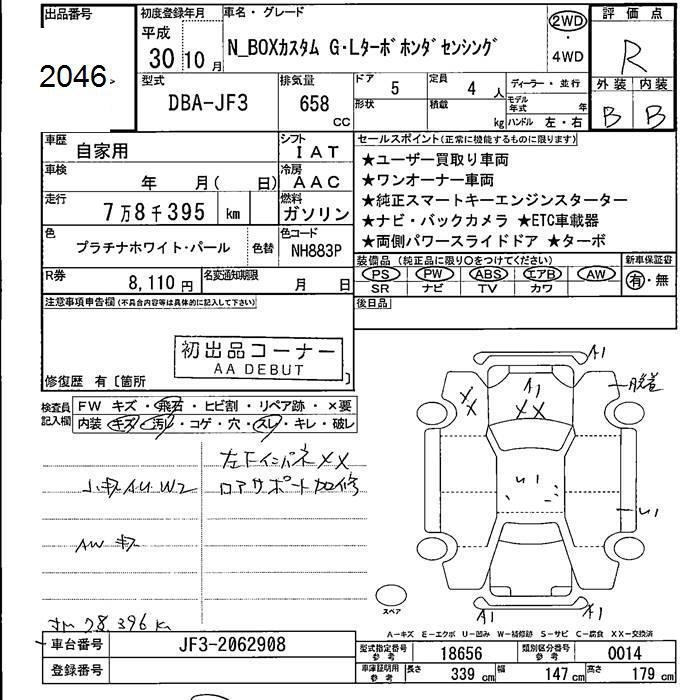 出品番号
2046
初度登録年月
平成
30 10 月
車名・グレード
N_BOXカスタム G・Lターボホンダセンシング
2WD
・
4WD
評価点
R
外装 内装
B B
型式
DBA-JF3
排気量
658
CC
ドア 5
定員 4 人
ディーラー・並行
形状
積載
kg
モデル年式 年
ハンドル 左・右
車歴
自家用
シフト
IAT
車検
年 月( 日)
冷房
AAC
走行
7万8千395 km
燃料
ガソリン
色
プラチナホワイト・パール
色替
色コード
NH883P
R券
8,110 円
名変通知期限
月 日
セールスポイント(正常に機能するものに限ります)
★ユーザー買取り車両
★ワンオーナー車両
★純正スマートキーエンジンスターター
★ナビ・バックカメラ ★ETC車載器
★両側パワースライドドア ★ターボ
装備品(純正品に限り○をつけてください)
新車保証書
PS PW ABS エアB AW
SR ナビ TV カワ
有・無
注意事項申告欄(不具合内容等は具体的に記入して下さい)
後日品
初出品コーナー
AA DEBUT
修復歴 有〔箇所 〕
検査員記入欄
FW キズ・飛石・ヒビ割・リペア跡・×要
内装 キズ・汚レ・コゲ・穴・スレ・キレ・破レ
左下インパネXX
小キズAU W2
ロアサポート加修
AW キズ
78396 km
A1
A1
XX
XX
A1
A1
スペア
A-キズ E-エクボ U-凹み W-補修跡 S-サビ C-腐食 XX-交換済
車台番号
JF3-2062908
登録番号
型式指定番号参考
18656
類別区分番号参考
0014
車庫証明用参考
長さ 339 cm
幅 147 cm
高さ 179 cm